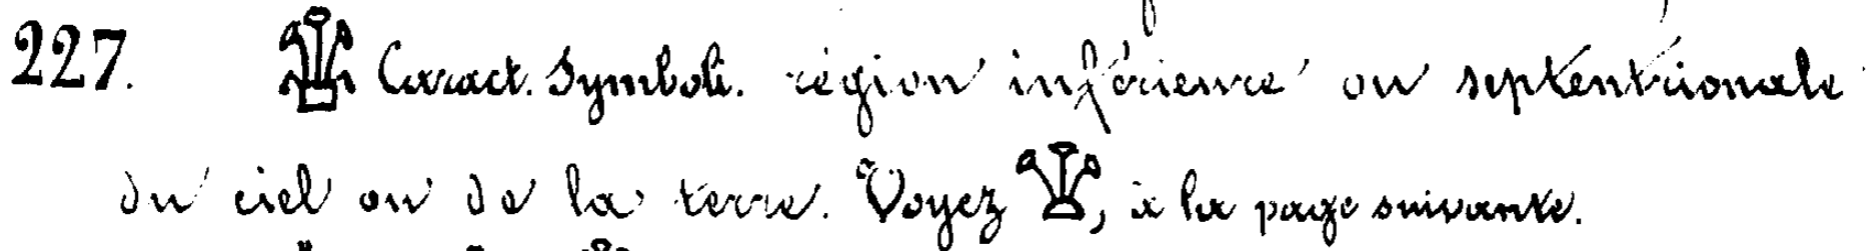 227. Caract. Symboli. région inférieure ou septentrionale
du ciel ou de la terre. Voyez , à la page suivante.